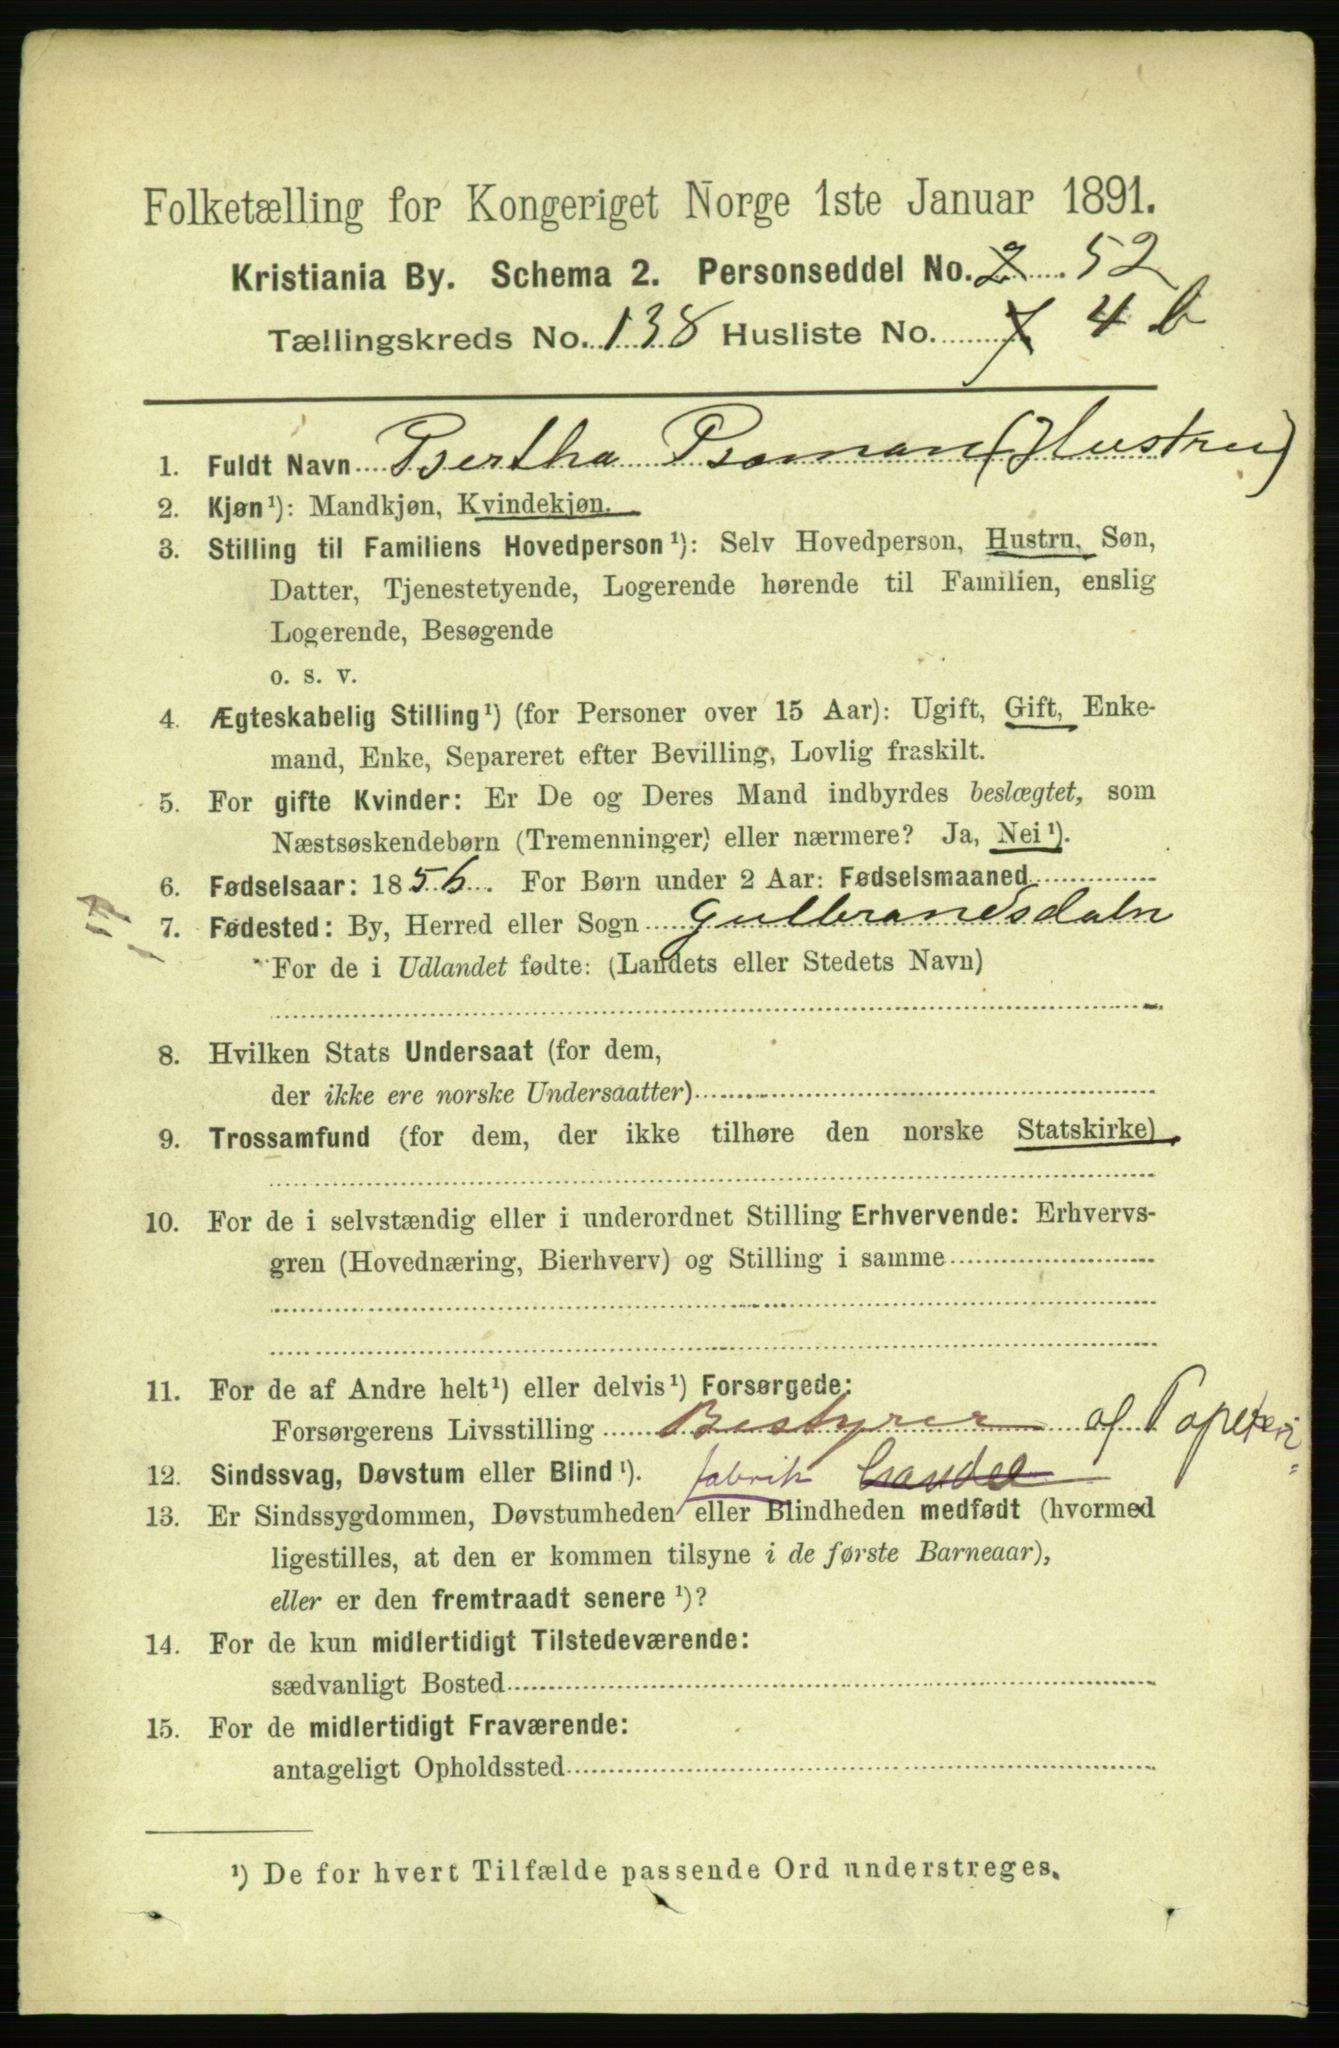 Folketælling for Kongeriget Norge 1ste Januar 1891.
Kristiania By. Schema 2. Personseddel No. 2 52
Tællingskreds No. 138 Husliste No. 7 4 b
1. Fuldt Navn Bertha (Hustru)
2. Kjøn ¹): Mandkjøn, Kvindekjøn.
3. Stilling til Familiens Hovedperson ¹): Selv Hovedperson, Hustru, Søn,
Datter, Tjenestetyende, Logerende hørende til Familien, enslig
Logerende, Besøgende
o. s. v.
4. Ægteskabelig Stilling ¹) (for Personer over 15 Aar): Ugift, Gift, Enke-
mand, Enke, Separeret efter Bevilling, Lovlig fraskilt.
5. For gifte Kvinder: Er De og Deres Mand indbyrdes beslægtet, som
Næstsøskendebørn (Tremenninger) eller nærmere? Ja, Nei ¹).
6. Fødselsaar: 1856. For Børn under 2 Aar: Fødselsmaaned
7. Fødested: By, Herred eller Sogn Gulbrandsdaln
For de i Udlandet fødte: (Landets eller Stedets Navn)
8. Hvilken Stats Undersaat (for dem,
der ikke ere norske Undersaatter)
9. Trossamfund (for dem, der ikke tilhøre den norske Statskirke)
10. For de i selvstændig eller i underordnet Stilling Erhvervende: Erhvervs-
gren (Hovednæring, Bierhverv) og Stilling i samme
11. For de af Andre helt ¹) eller delvis ¹) Forsørgede:
Forsørgerens Livsstilling Bestyrer af
12. Sindssvag, Døvstum eller Blind ¹). fabrik
13. Er Sindssygdommen, Døvstumheden eller Blindheden medfødt (hvormed
ligestilles, at den er kommen tilsyne i de første Barneaar),
eller er den fremtraadt senere ¹)?
14. For de kun midlertidigt Tilstedeværende:
sædvanligt Bosted
15. For de midlertidigt Fraværende:
antageligt Opholdssted
¹) De for hvert Tilfælde passende Ord understreges.